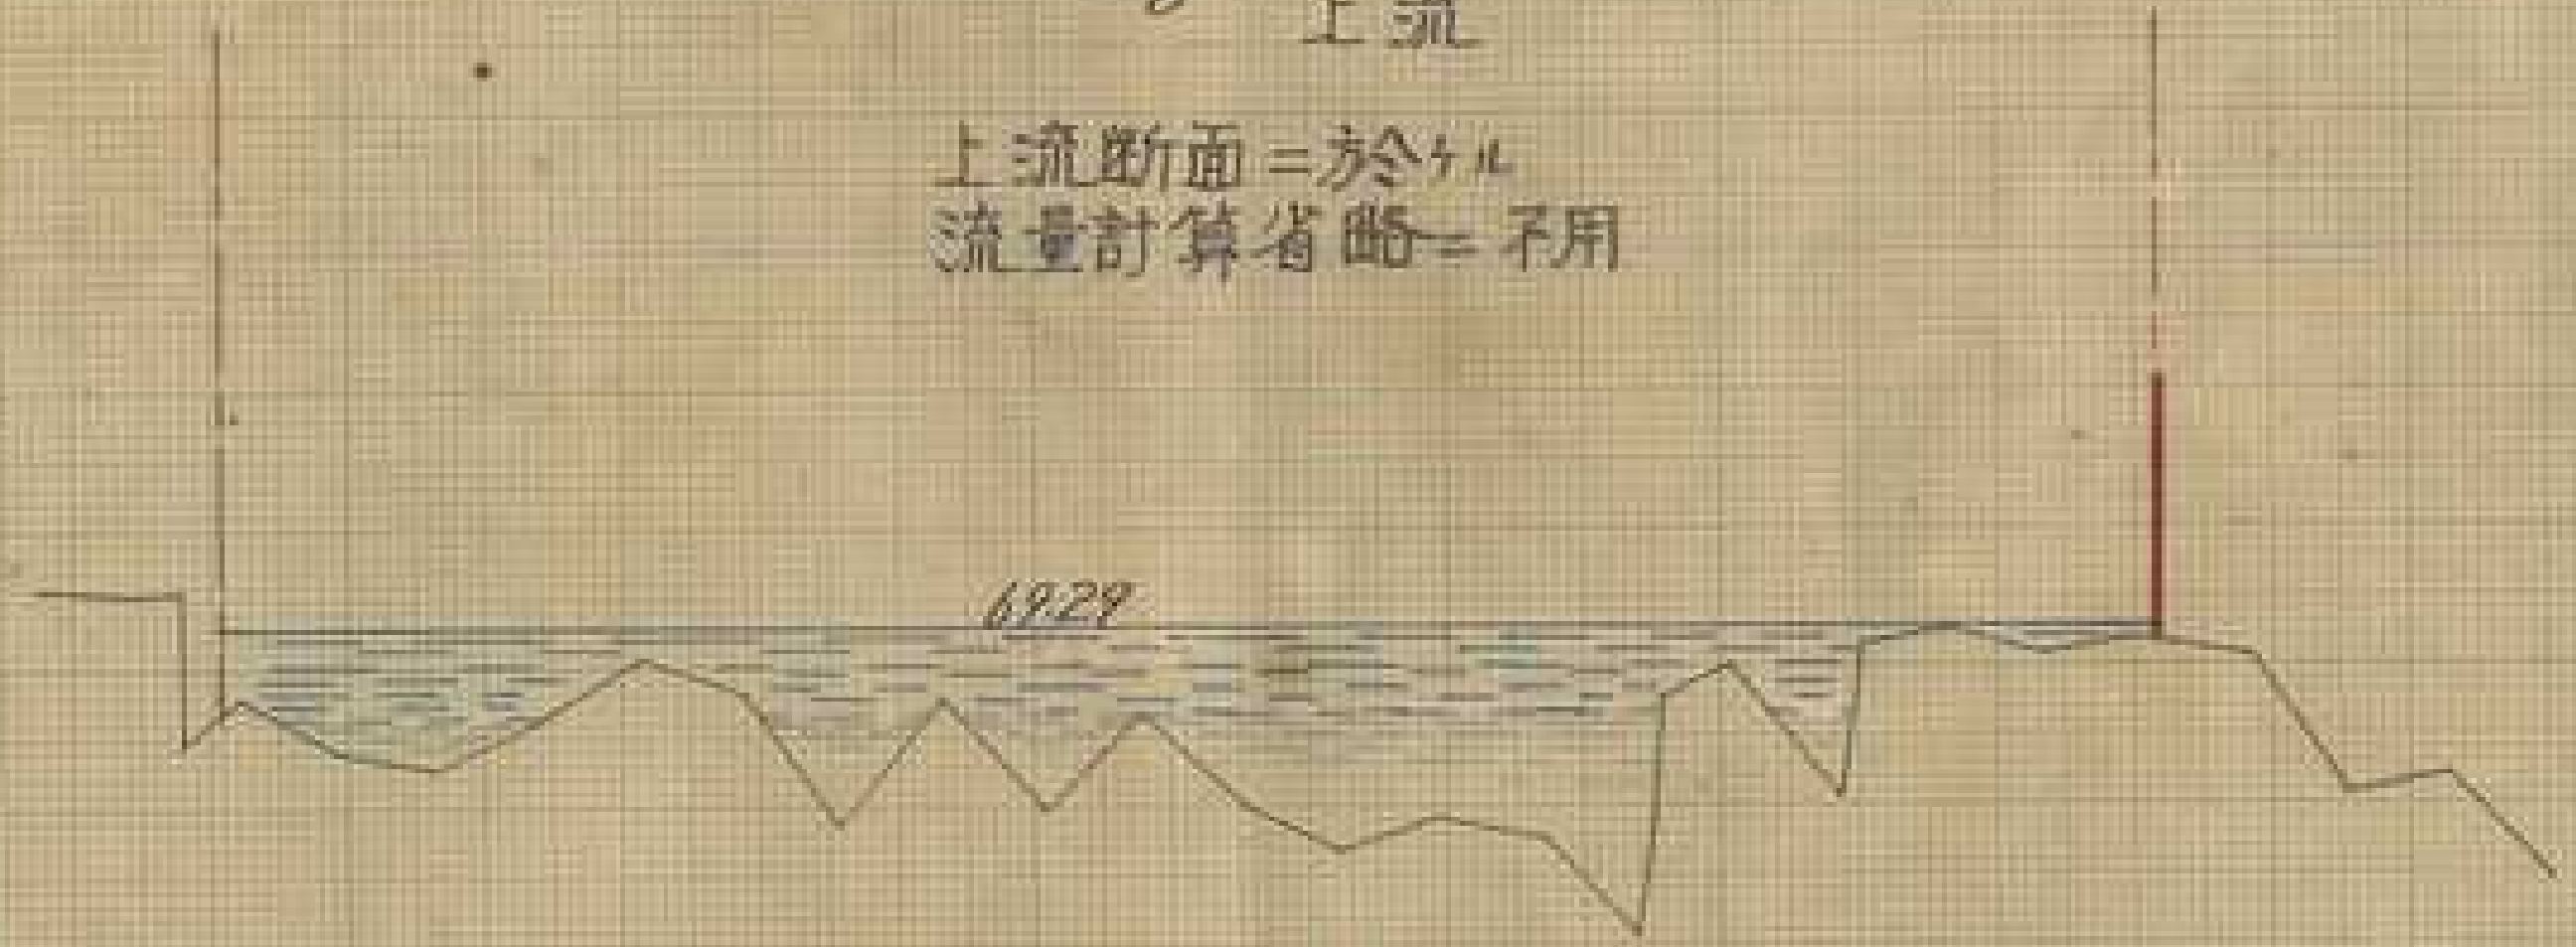 上流
上流断面ニ於ケル
流量計算省略ニ不用
69.29